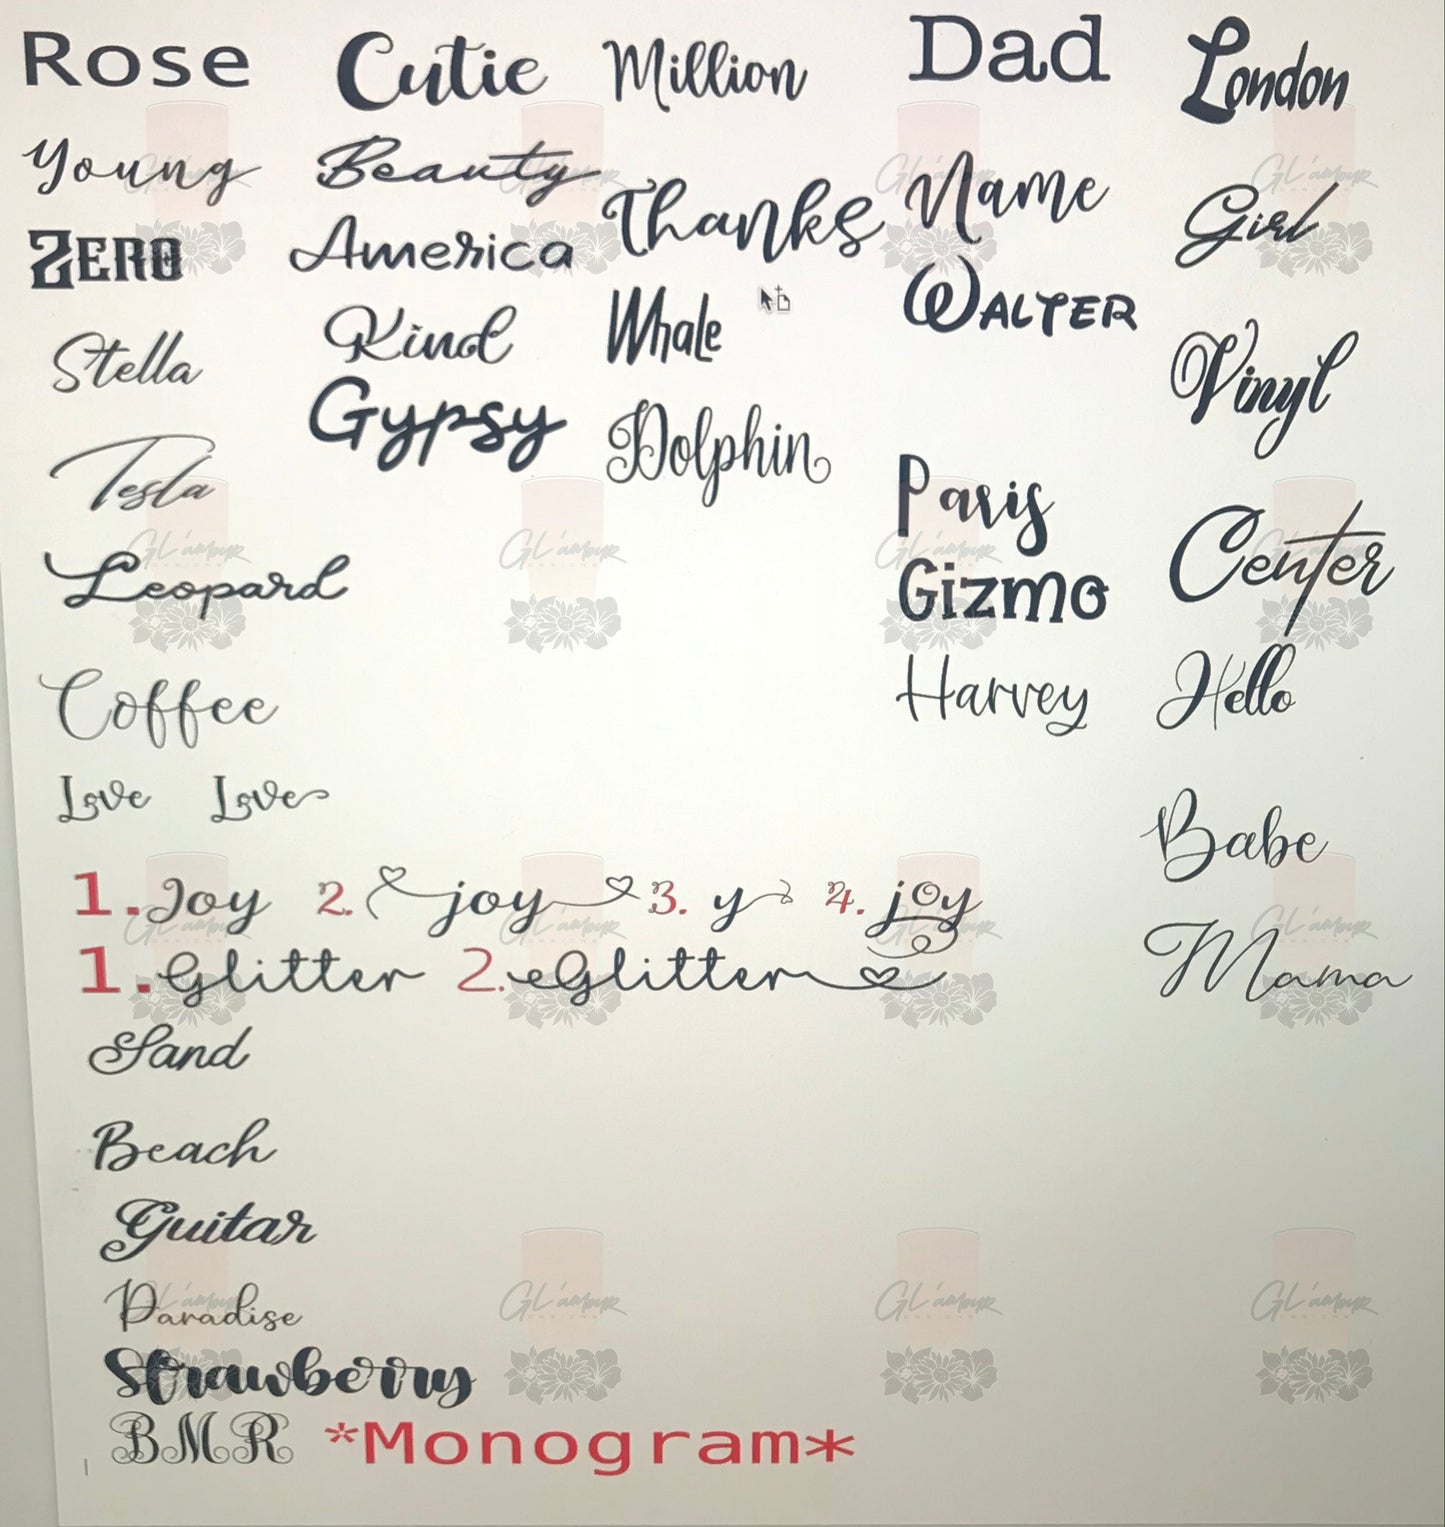 Rose
Cutie
Million
Dad
London
Young
Beauty
Thanks
Name
Girl
Zero
America
Whale
Walter
Stella
Kind
Vinyl
Gypsy
Dolphin
Tesla
Paris
Center
Leopard
Gizmo
Coffee
Harvey
Hello
Love Love
Babe
1. Joy 2. joy 3. y 4. joy
1. Glitter 2. Glitter
Mama
Sand
Beach
Guitar
Paradise
Strawberry
BMR *Monogram*
GL'amour
DESIGNS